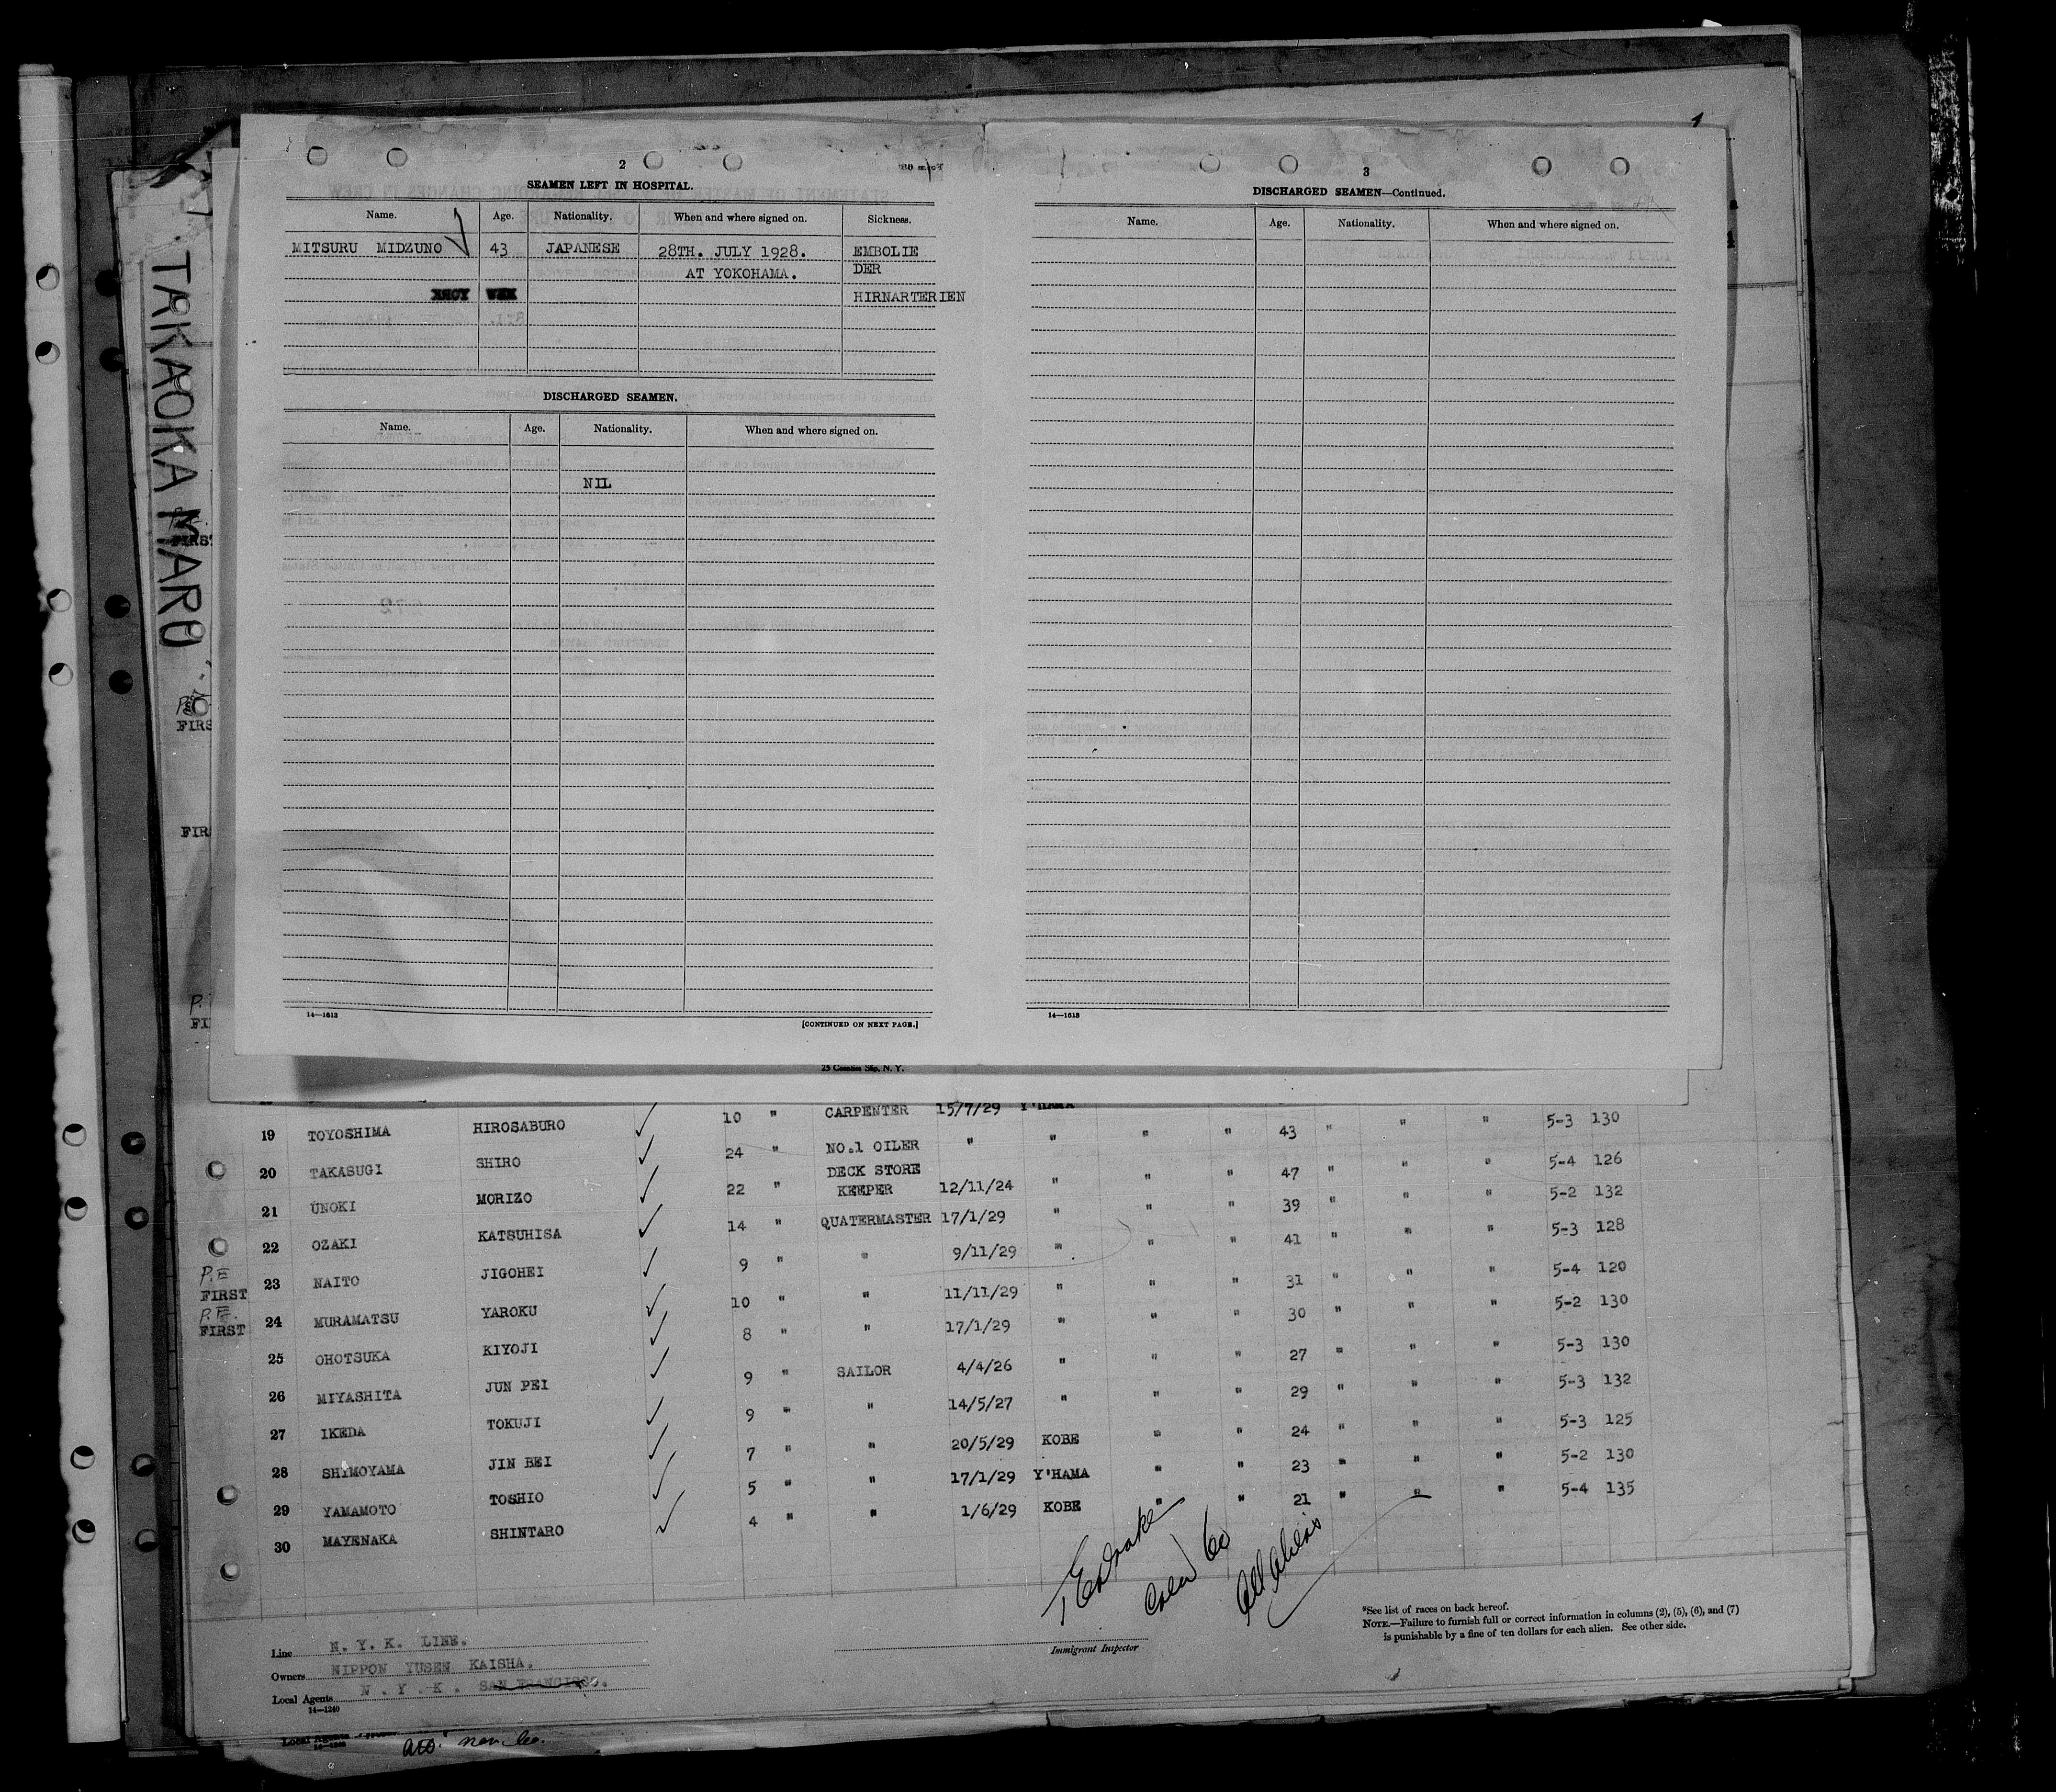 TAKAOKA MARU
2
SEAMEN LEFT IN HOSPITAL.
Name. Age. Nationality. When and where signed on. Sickness.
MITSURU MIDZUNO 43 JAPANESE 28TH. JULY 1928. EMBOLIE
AT YOKOHAMA. DER
HIRNARTERIEN
DISCHARGED SEAMEN.
Name. Age. Nationality. When and where signed on.
NIL
14—1613
[CONTINUED ON NEXT PAGE.]
3
DISCHARGED SEAMEN—Continued.
Name. Age. Nationality. When and where signed on.
14—1613
25 Coenties Slip, N. Y.
10 " CARPENTER 15/7/29 Y'HAMA
19 TOYOSHIMA HIROSABURO 24 " NO.1 OILER " " " " 43 " " " 5-3 130
20 TAKASUGI SHIRO 22 " DECK STORE KEEPER 12/11/24 " " " 47 " " " 5-4 126
21 UNOKI MORIZO 14 " QUATERMASTER 17/1/29 " " " 39 " " " 5-2 132
22 OZAKI KATSUHISA 9 " " 9/11/29 " " " 41 " " " 5-3 128
P.E
FIRST 23 NAITO JIGOHEI 10 " " 11/11/29 " " " 31 " " " 5-4 120
P.E.
FIRST 24 MURAMATSU YAROKU 8 " " 17/1/29 " " " 30 " " " 5-2 130
25 OHOTSUKA KIYOJI 9 " SAILOR 4/4/26 " " " 27 " " " 5-3 130
26 MIYASHITA JUN PEI 9 " " 14/5/27 " " " 29 " " " 5-3 132
27 IKEDA TOKUJI 7 " " 20/5/29 KOBE " " 24 " " " 5-3 125
28 SHIMOYAMA JIN BEI 5 " " 17/1/29 Y'HAMA " " 23 " " " 5-2 130
29 YAMAMOTO TOSHIO 4 " " 1/6/29 KOBE " " 21 " " " 5-4 135
30 MAYENAKA SHINTARO
Crew 60
All Aliens
Immigrant Inspector
*See list of races on back hereof.
NOTE.—Failure to furnish full or correct information in columns (2), (5), (6), and (7)
is punishable by a fine of ten dollars for each alien. See other side.
Line N. Y. K. LINE.
Owners NIPPON YUSEN KAISHA.
Local Agents N. Y. K. SAN FRANCISCO.
14—1240
Local Agents